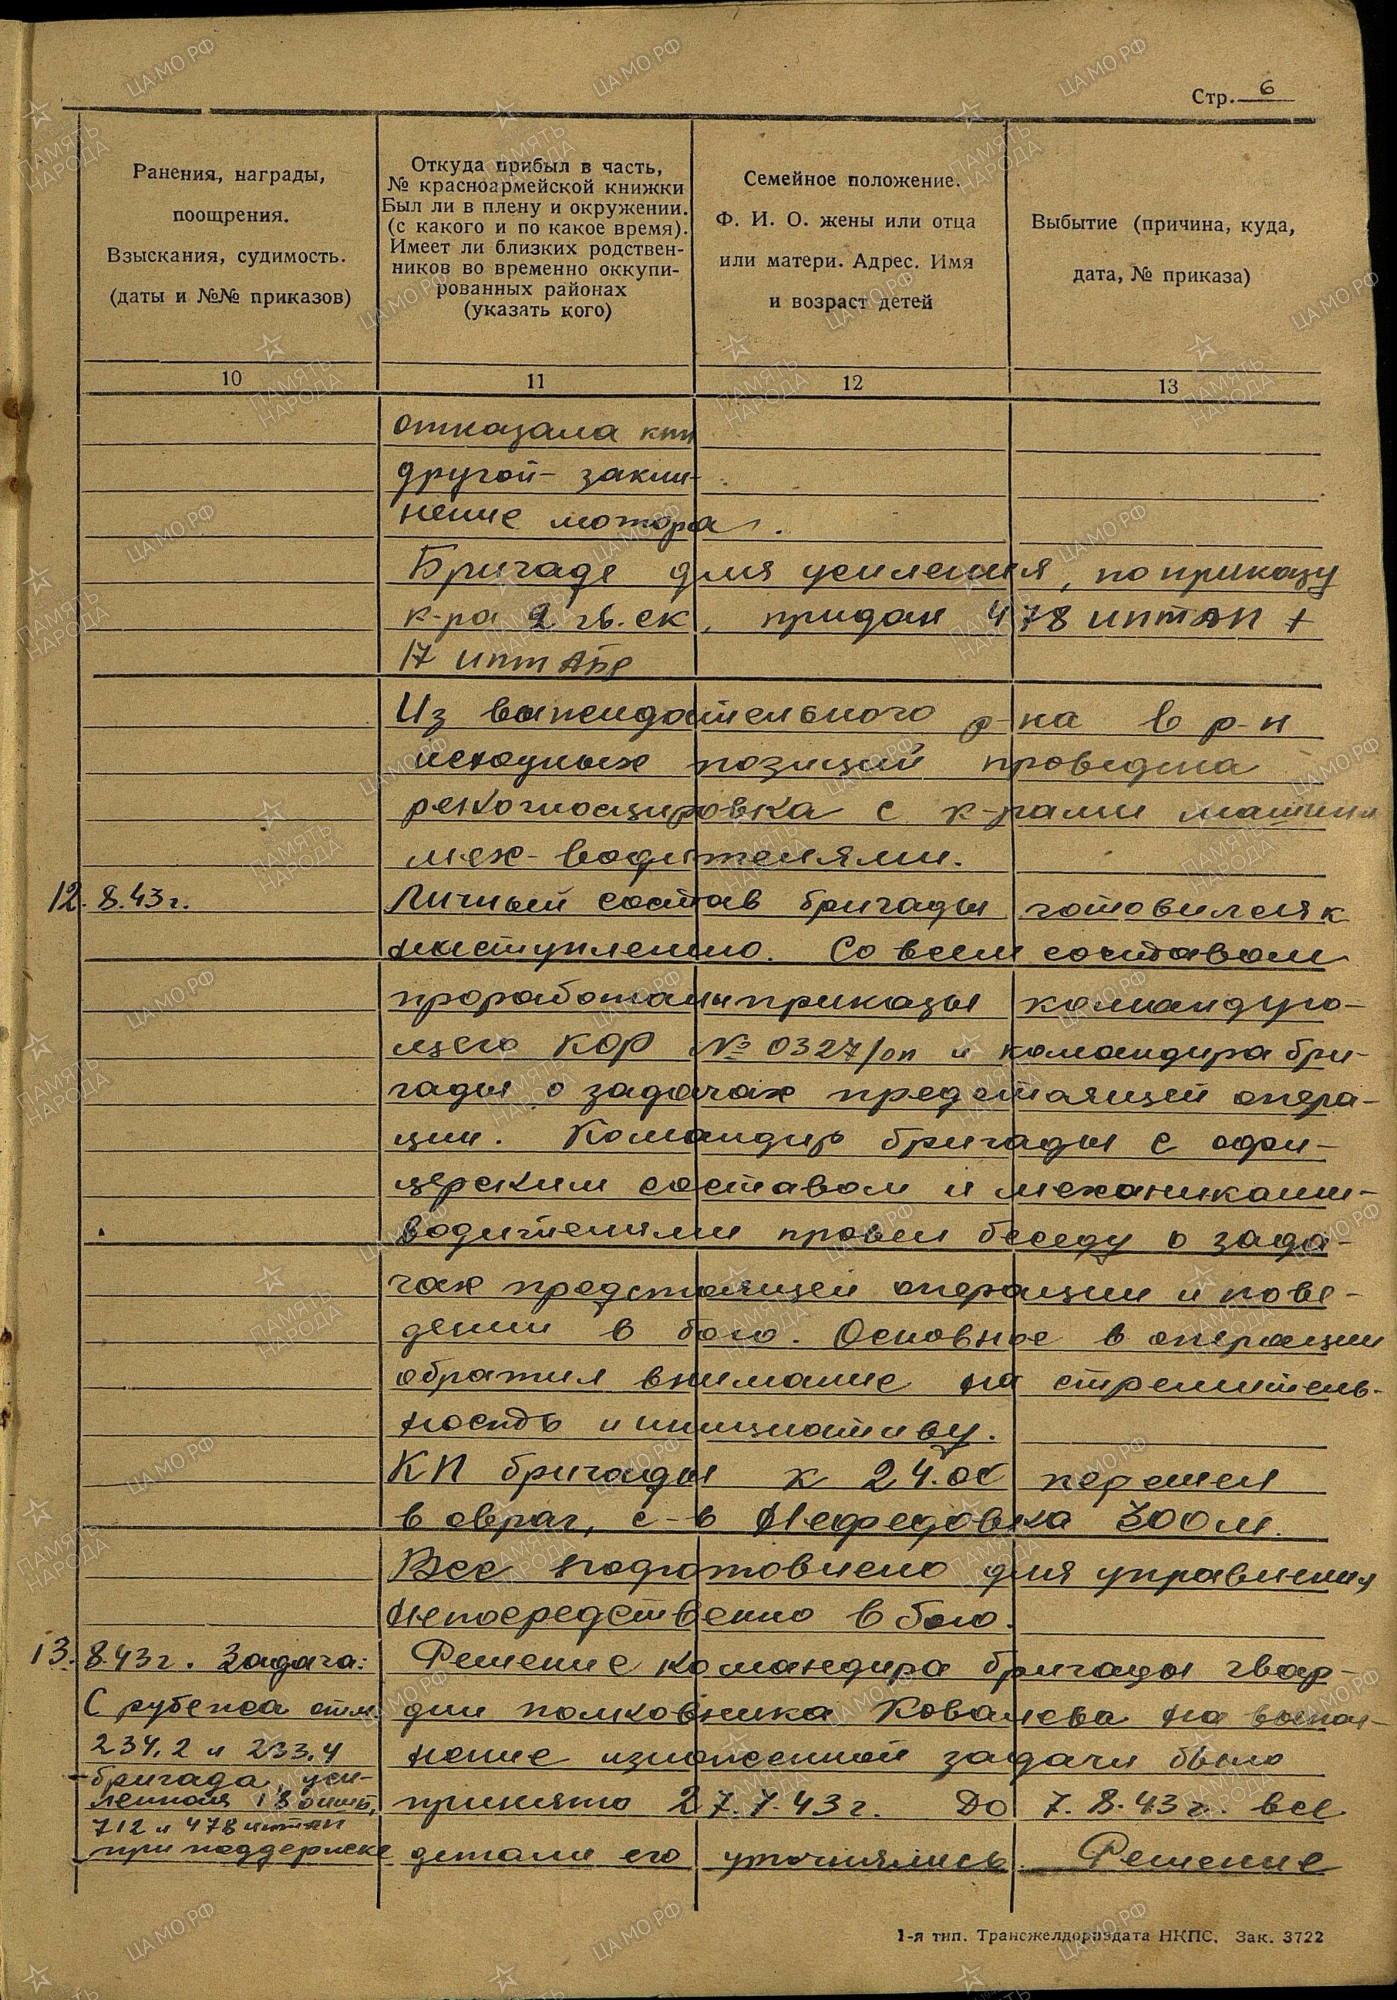 Стр. 6
Ранения, награды,
поощрения.
Взыскания, судимость.
(даты и №№ приказов)
Откуда прибыл в часть,
№ красноармейской книжки
Был ли в плену и окружении.
(с какого и по какое время).
Имеет ли близких родствен-
ников во временно оккупи-
рованных районах
(указать кого)
Семейное положение.
Ф. И. О. жены или отца
или матери. Адрес. Имя
и возраст детей
Выбытие (причина, куда,
дата, № приказа)
10 11 12 13
отказала кпп
другой - закли-
нение мотора.
Бригаде для усиления, по приказу
к-ра 2 гв. ск, придан 478 иптАП +
17 иптАбр
Из выжидательного р-на в р-н
исходных позиций проведена
рекогносцировка с к-рами машин и
мех-водителями.
12. 8.43г. Личный состав бригады готовился к
наступлению. Со всем составом
проработаны приказы командую-
щего КФ № 0327/оп и командира бри-
гады о задачах предстоящей опера-
ции. Командир бригады с офи-
церским составом и механиками-
водителями провел беседу о зада-
чах предстоящей операции и пове-
дении в бою. Основное в операции
обратил внимание на стремитель-
ность и инициативу.
КП бригады к 24.00 перешел
в овраг, с-в Нефедовка 300 м.
Все подготовлено для управления
непосредственно в бою.
13. 8.43г. Задача:
С рубежа отм.
234.2 и 233.4
бригада, уси-
ленная
712 и 478 иптап
при поддержке
Решение командира бригады гвар-
дии полковника Ковалева на выпол-
нение изложенной задачи было
принято 27.7.43г. До 7.8.43г. все
детали его уточнялись. Решение
1-я тип. Трансжелдориздата НКПС. Зак. 3722